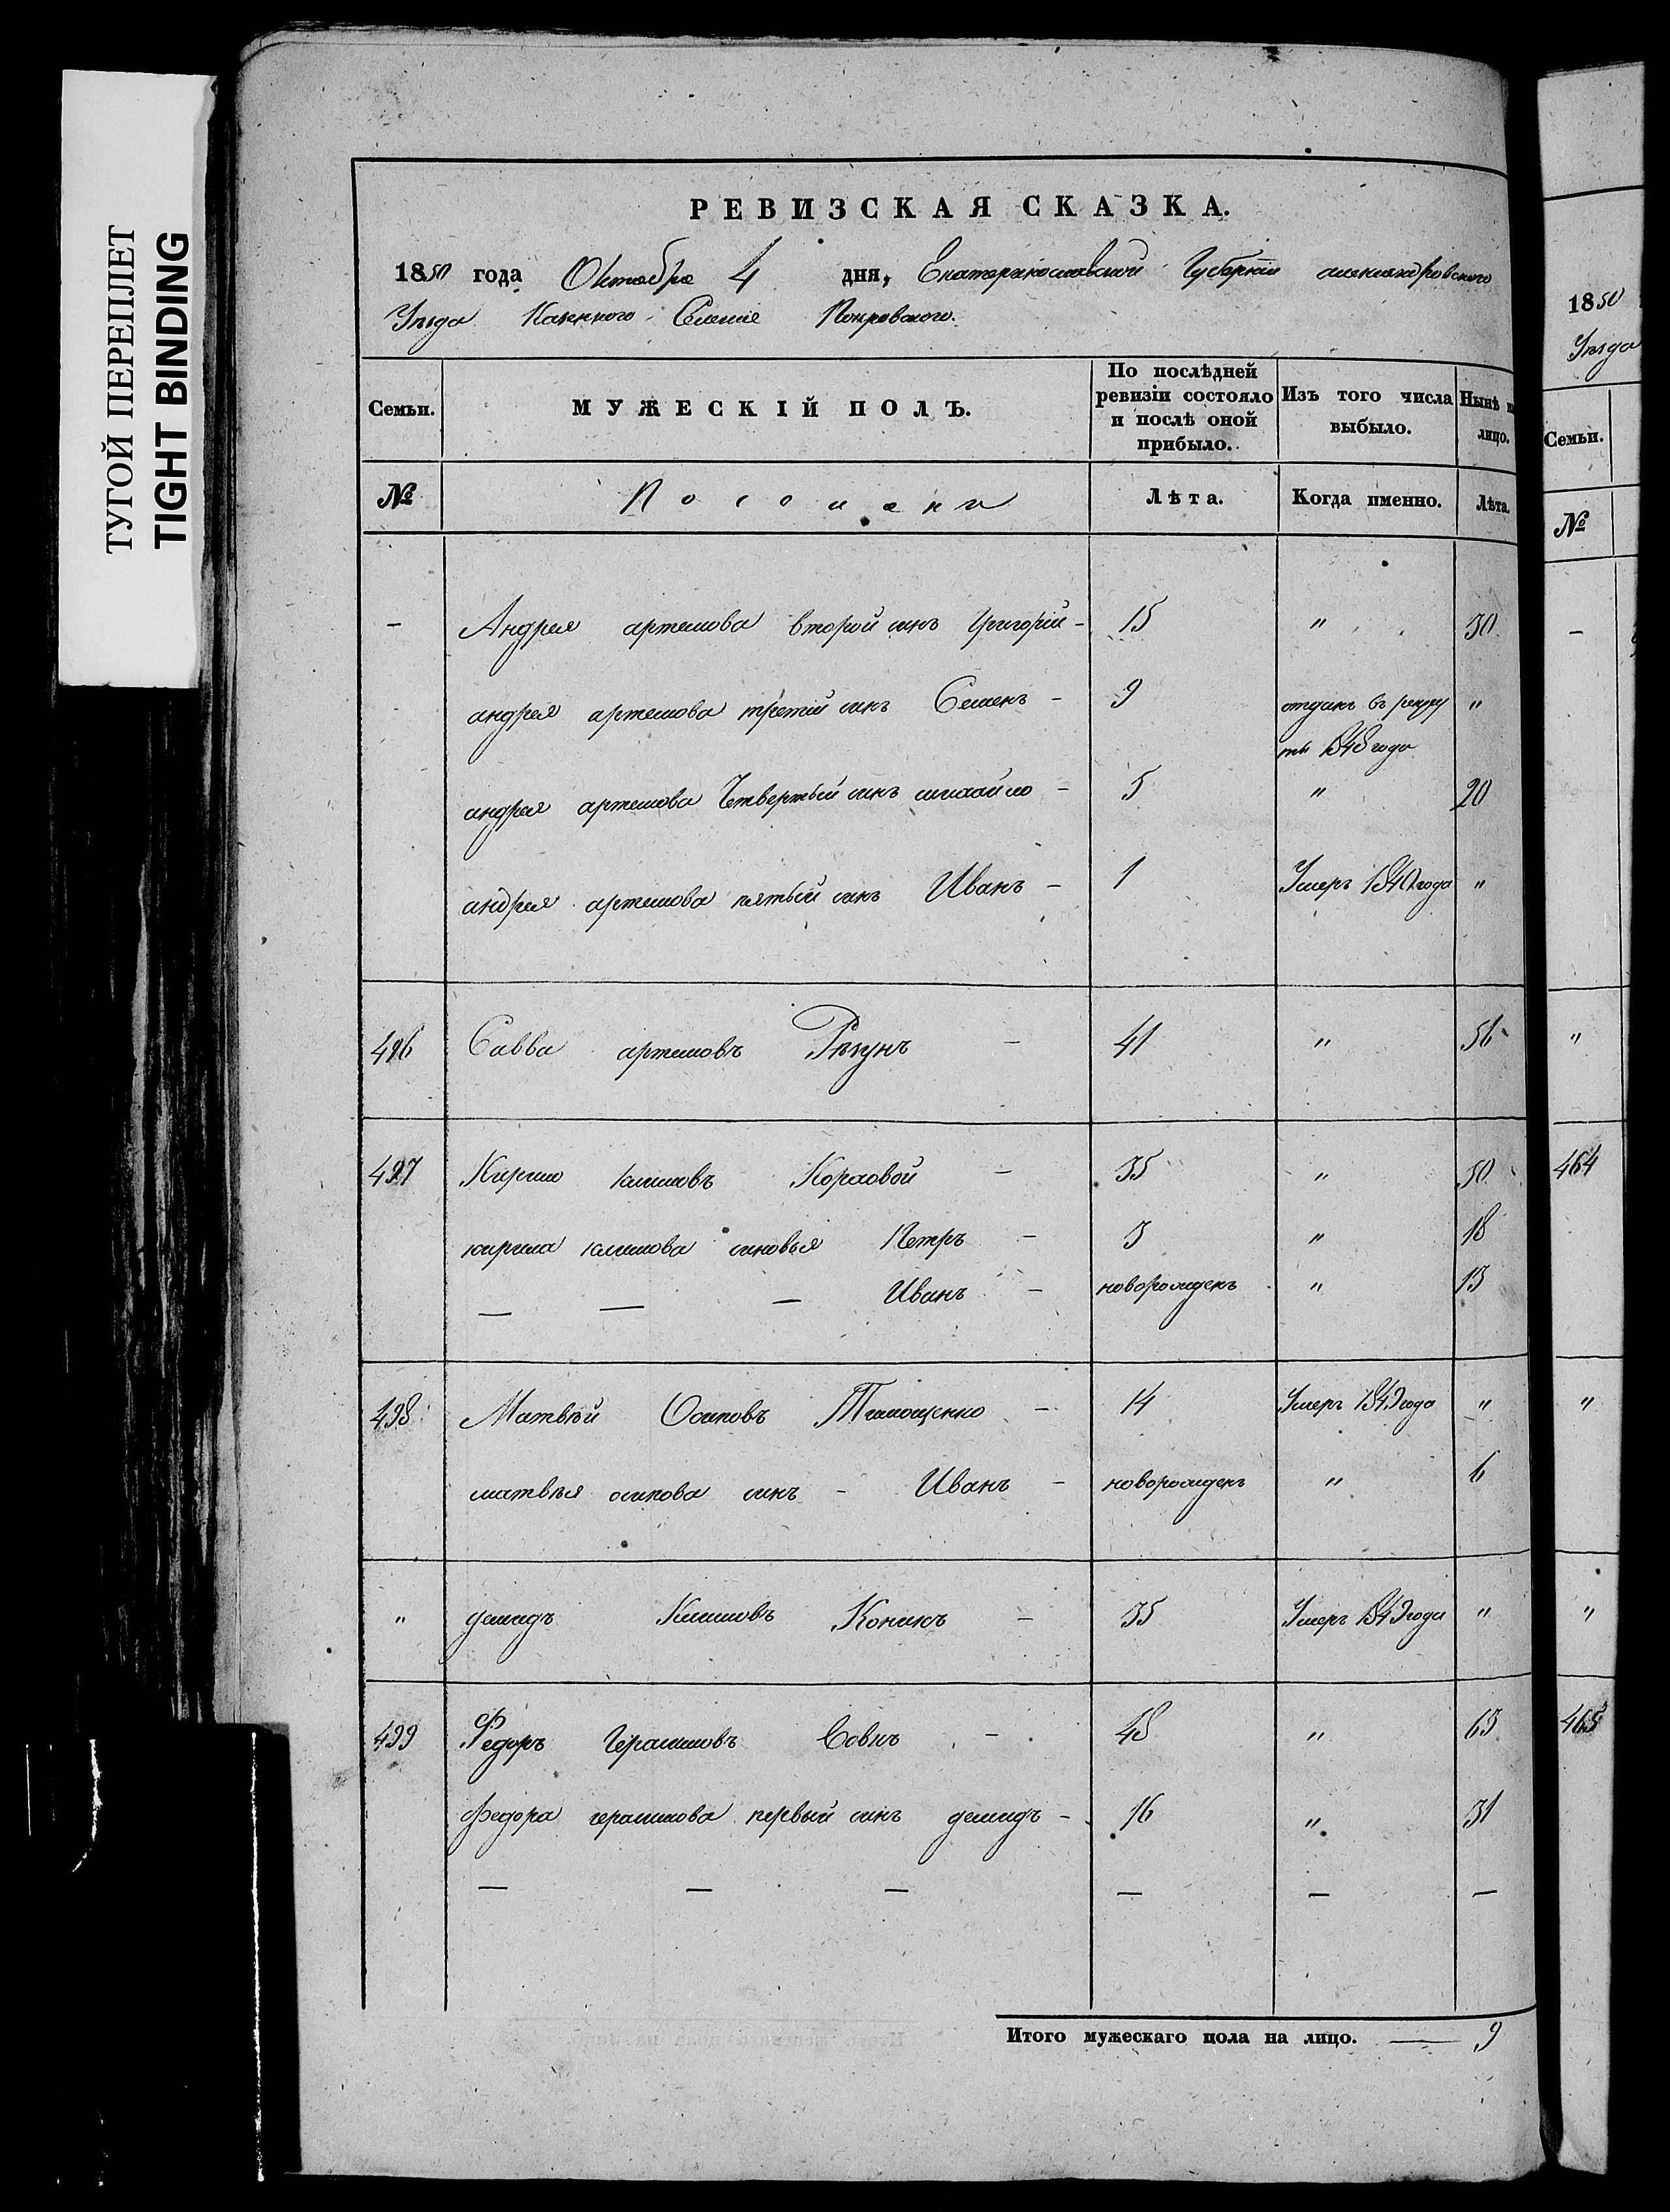 ТУГОЙ ПЕРЕПЛЕТ
TIGHT BINDING
РЕВИЗСКАЯ СКАЗКА.
1850 года Октября 4 дня, Екатеринославской Губернии александровского
Уѣзда Казенного Селение Покровского.
Семьи. МУЖЕСКІЙ ПОЛЪ. По послѣдней ревизіи состояло и послѣ оной прибыло. Изъ того числа выбыло. Нынѣ на лицо.
№ Поселяни Лѣта. Когда именно. Лѣта.
— Андрея артемова второй синъ Григорій — 15 " 30
андрея артемова третій синъ Семенъ — 9 отданъ въ рекру "
ты 1848 года
андрея артемова Четвертый синъ михайло — 5 " 20
андрея артемова пятый синъ Иванъ — 1 Умеръ 1840 года "
496 Савва артемовъ — 41 " 56
497 Кирило климовъ Корховой — 35 " 50
кирила климова синовья Петръ — 3 " 18
— — — Иванъ — новорожденъ " 13
498 Матвѣй Осиповъ Тимощенко — 14 Умеръ 1849 года "
матвѣя осипова синъ — Иванъ — новорожденъ " 6
" демидъ Климовъ Коникъ — 35 Умеръ 1849 года "
499 Федоръ Герасимовъ — 48 " 63
Федора герасимова первый синъ демидъ — 16 " 31
— — — — — —
Итого мужескаго пола на лицо. — 9
1850
Уѣзда
Семьи.
№
—
"
464
"
"
465